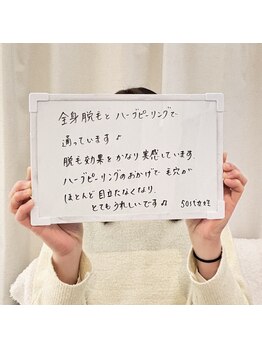 全身脱毛とハーブピーリングで
通っています♪
脱毛効果をかなり実感しています。
ハーブピーリングのおかげで毛穴が
ほとんど目立たなくなり、
とてもうれしいです♫
50代女性